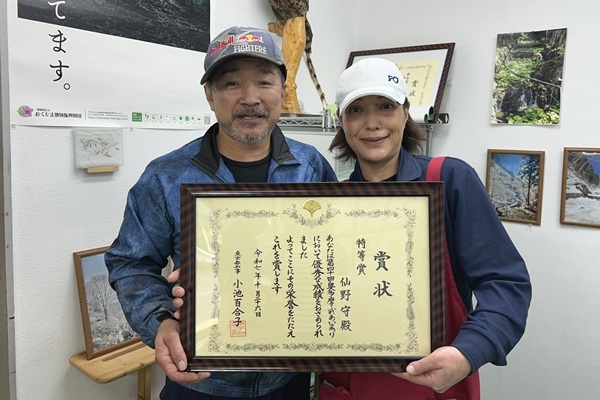 てます。
おくたま地域振興財団
Red Bull
FIGHTERS
PO
賞状
賞状
特等賞
仙野 守 殿
あなたは第四十回奥多摩
において優秀な成績をおさめられ
ました
よってここにその栄誉をたたえ
これを賞します
令和七年十月二十六日
東京都知事 小池百合子